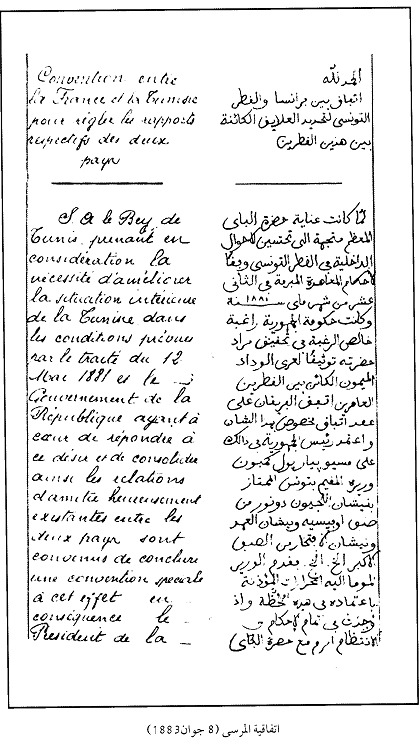 Convention entre
la France et la Tunisie
pour régler les rapports
respectifs des deux
pays
S. A le Bey de
Tunis prenant en
considération la
nécessité d'améliorer
la situation intérieure
de la Tunisie dans
les conditions prévues
par le traité du 12
Mai 1881 et le
Gouvernement de la
République ayant à
cœur de répondre à
ce désir et de consolider
ainsi les relations
d'amitié heureusement
existantes entre les
deux pays sont
convenus de conclure
une convention spéciale
à cet effet en
conséquence le
Président de la
الحمد لله
اتفاق بين فرانسا والقطر
التونسي لتحديد العلايق الكائنة
بين هذين القطرين
لما كانت عناية حضرة الباي
المعظم متجهة الى تحسين الاحوال
الداخلية في القطر التونسي وفقا
لاحكام المعاهدة المبرمة في الثاني
عشر من شهر ماي سنة ١٨٨١
وكانت حكومة الجمهورية راغبة
خالص الرغبة في تحقيق مراد
حضرته توثيقا لعرى الوداد
الميمون الكائن بين القطرين
العامرين اتفق الفريقان على
عقد اتفاق مخصوص بهذا الشان
واعتمد رئيس الجمهورية في ذالك
على مسيو بيار بول كمبون
وزيره المقيم بتونس الممتاز
بنيشان اللجيون دونور من
صنف اوفيسيه ونيشان العهد
ونيشان الافتخار من الصنف
الاكبر الخ الخ فقدم الوزير
الموما اليه المحررات المؤذنة
باعتماده في هذه الخطة واذ
وجدت في تمام الاحكام و
الانتظام ابرم مع حضرة الباي
اتفاقية المرسى (8 جوان 1883)